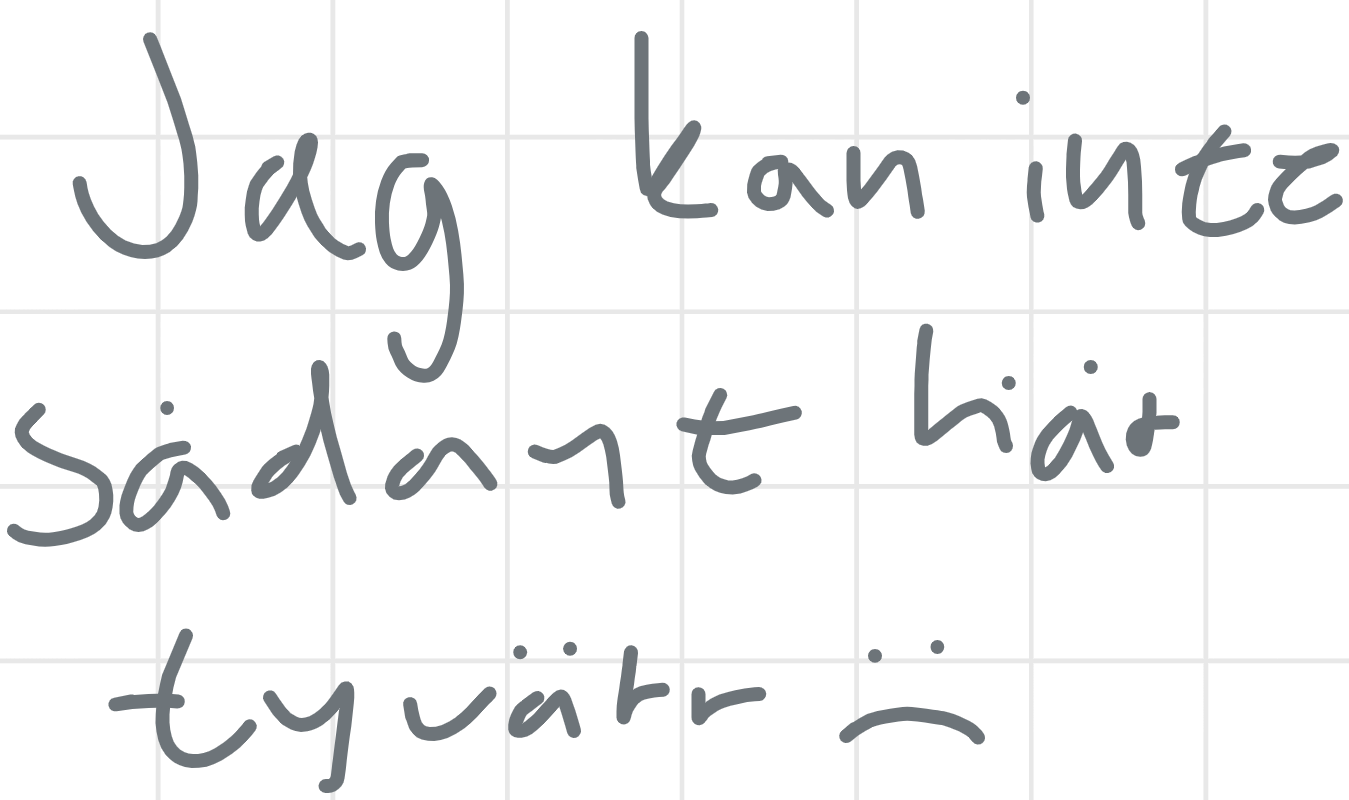 Jag kan inte
sådant här
tyvärr :(